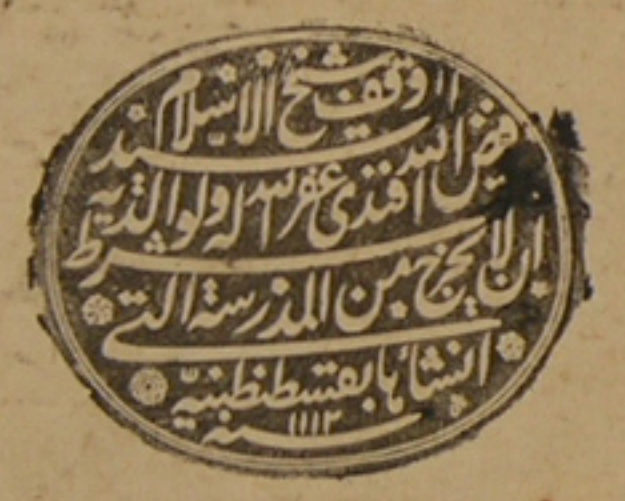 وقف شيخ الاسلام
سيد فيض الله افندى غفر الله له ولوالديه
بشرط ان لا يخرج من المدرسة التى
انشأها بقسطنطينيه
سنه ١١١٢